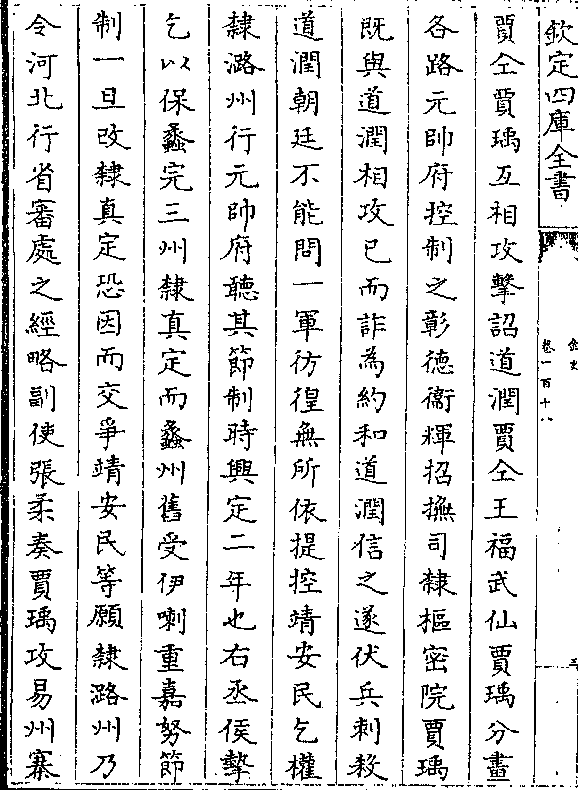 欽定四庫全書
金史
卷一百十八
賈仝賈瑀互相攻擊詔道潤賈仝王福武仙賈瑀分畫
各路元帥府控制之彰德衞輝招撫司隸樞密院賈瑀
既與道潤相攻已而詐為約和道潤信之遂伏兵刺殺
道潤朝廷不能問一軍彷徨無所依提控靖安民乞權
隸潞州行元帥府聽其節制時興定二年也右丞侯摯
乞以保蠡完三州隸真定而蠡州舊受伊喇重嘉努節
制一旦改隸真定恐因而交爭靖安民等願隸潞州乃
令河北行省審處之經略副使張柔奏賈瑀攻易州寨